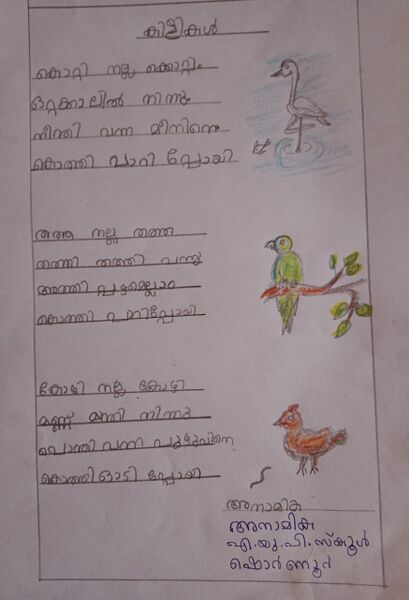 കിളികൾ
കൊറ്റി നല്ല ക്കൊറ്റി
ഒറ്റക്കാലിൽ നിന്നു
നീന്തി വന്ന മീനിനെ
കൊത്തി പാറി പ്പോയി
തത്ത നല്ല തത്ത
തത്തി തത്തി വന്നു
അത്തി പ്പഴമെല്ലാം
കൊത്തി പറന്നിപ്പോയി
കോഴി നല്ല കോഴി
മണ്ണ് മാന്തി നിന്നു
പൊന്തി വന്ന പുഴുവിനെ
കൊത്തി ഓടി പ്പോയി
അനാമിക
അനാമിക
എ.യു.പി.സ്കൂൾ
ഷൊർണൂർ